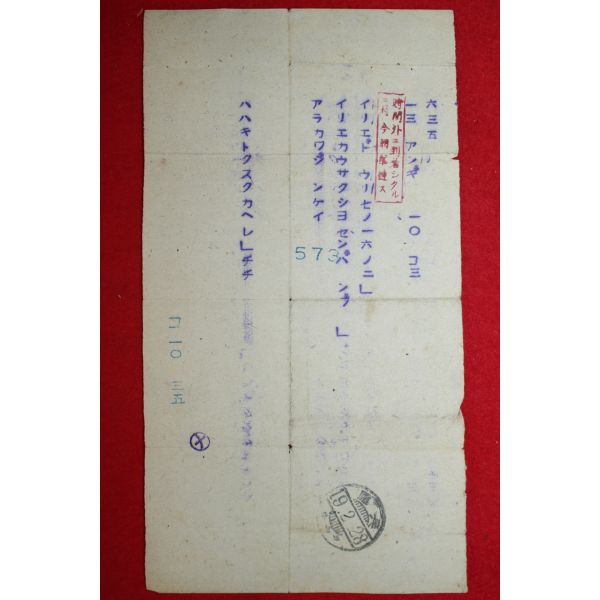 六三五
一三 アンギ 一〇 コ三
時間外ニ到着シタル
ニ付今朝配達ス
イリエド ウリセノ一六ノ二」
イリエカウサクシヨ ゼンパ ンヅ 」
アラカワジ ンケイ
573
ハハキトクスクカヘレ」チチ
コ 10 三五
19.2.28